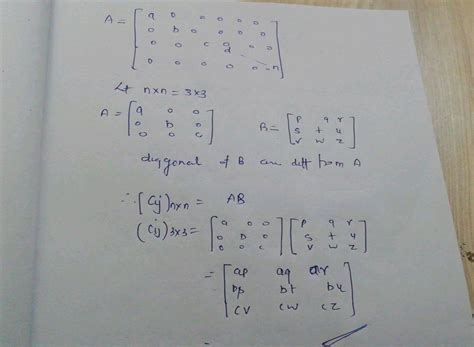 A = [ a 0 0 0 0 0
0 b 0 0 0 0
0 0 c 0 0
d
0 0 0 0 0 n ]
Let n×n = 3×3
A = [ a 0 0
0 b 0
0 0 c ]
B = [ p q r
s t u
v w z ]
diagonal of B are diff from A
∴ [Cij]n×n = AB
(Cij)3×3 = [ a 0 0
0 b 0
0 0 c ] [ p q r
s t u
v w z ]
= [ ap aq ar
bp bt bu
cv cw cz ]